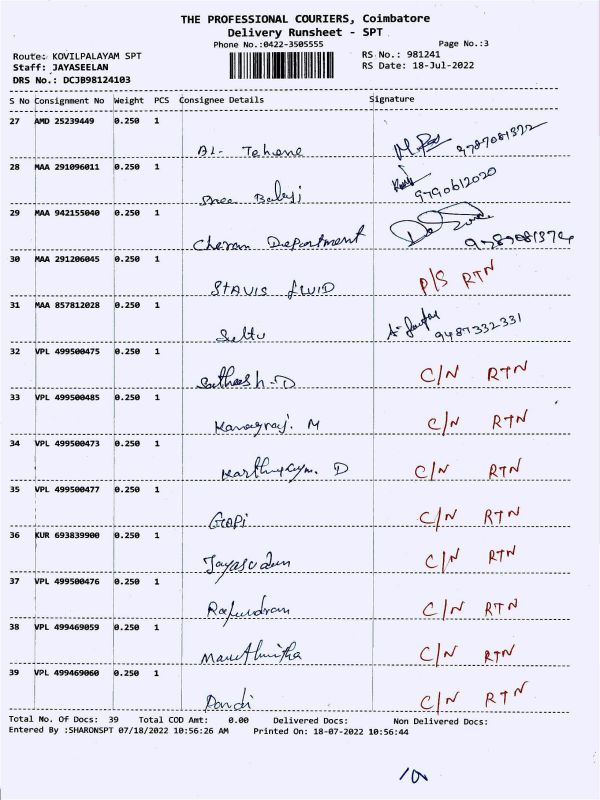 THE PROFESSIONAL COURIERS, Coimbatore
Delivery Runsheet - SPT
Phone No.:0422-3505555 Page No.:3
Route: KOVILPALAYAM SPT RS No.: 981241
Staff: JAYASEELAN RS Date: 18-Jul-2022
DRS No.: DCJB98124103
S No Consignment No Weight PCS Consignee Details Signature
27 AMD 25239449 0.250 1
AL- Tehane
28 MAA 291096011 0.250 1
Sree Balaji 9790612020
29 MAA 942155040 0.250 1
Cheran Department
30 MAA 291206045 0.250 1
STAVIS FLUID P/S RTN
31 MAA 857812028 0.250 1
Seltu 9487332331
32 VPL 499500475 0.250 1
Sathees h-D C/N RTN
33 VPL 499500485 0.250 1
Kanagraj. M C/N RTN
34 VPL 499500473 0.250 1
D C/N RTN
35 VPL 499500477 0.250 1
Gopi C/N RTN
36 KUR 693839900 0.250 1
C/N RTN
37 VPL 499500476 0.250 1
C/N RTN
38 VPL 499469059 0.250 1
C/N RTN
39 VPL 499469060 0.250 1
Pandi C/N RTN
Total No. Of Docs: 39 Total COD Amt: 0.00 Delivered Docs: Non Delivered Docs:
Entered By :SHARONSPT 07/18/2022 10:56:26 AM Printed On: 18-07-2022 10:56:44